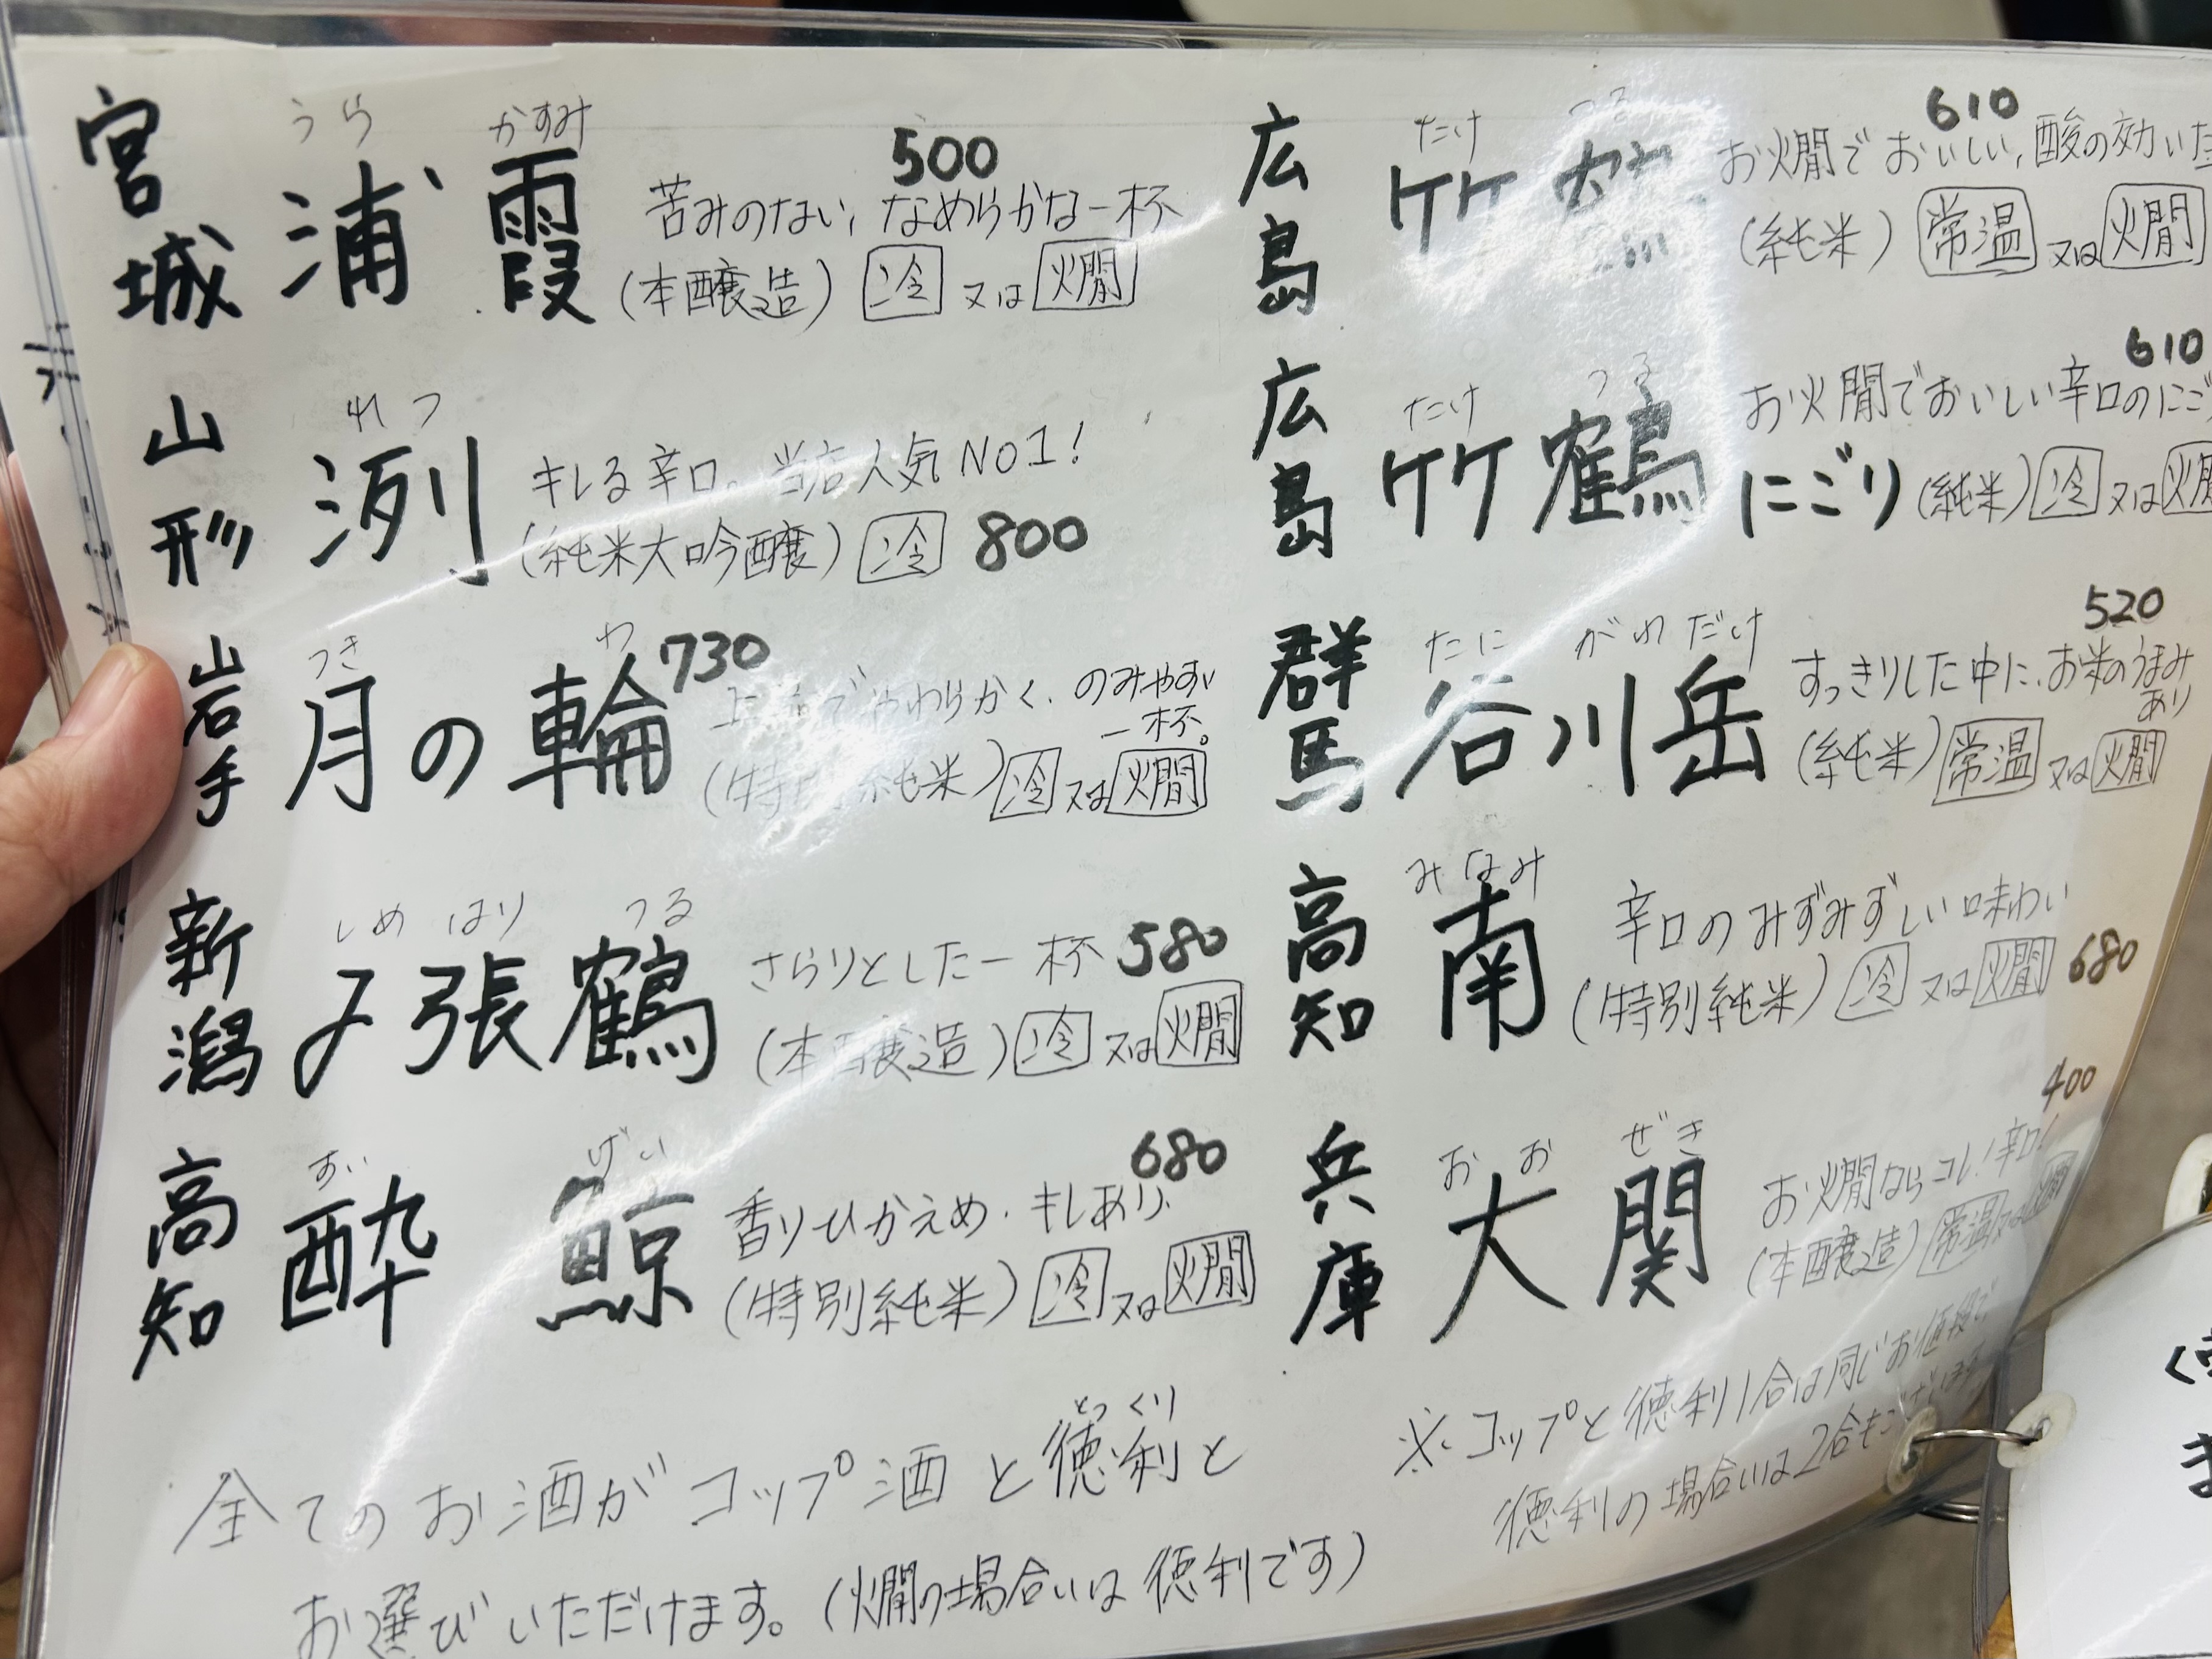 宮城
うら かすみ
浦霞
500
苦みのない、なめらかな一杯
(本醸造) 冷 又は 燗
山形
れつ
洌
キレる辛口。当店人気NO1!
(純米大吟醸) 冷 800
岩手
つき わ
月の輪
730
でやわらかく、のみやすい
一杯。
(特別純米) 冷 又は 燗
新潟
しめ はり つる
〆張鶴
さらりとした一杯 580
(本醸造) 冷 又は 燗
高知
すい げい
酔鯨
680
香りひかえめ、キレあり。
(特別純米) 冷 又は 燗
広島
たけ つる
竹鶴
610
お燗でおいしい、酸の効いた
(純米) 常温 又は 燗
広島
たけ つる
竹鶴
610
お燗でおいしい辛口のにご
にごり (純米) 冷 又は 燗
群馬
たに がわ だけ
谷川岳
520
すっきりした中に、お米のうまみ
あり
(純米) 常温 又は 燗
高知
みなみ
南
辛口のみずみずしい味わい
(特別純米) 冷 又は 燗 680
兵庫
おお ぜき
大関
400
お燗ならコレ!辛口!
(本醸造) 常温 又は 燗
全てのお酒がコップ酒と徳利と
とっくり
お選びいただけます。(燗の場合は徳利です)
※コップと徳利1合は同じお値段で
徳利の場合は2合もございます